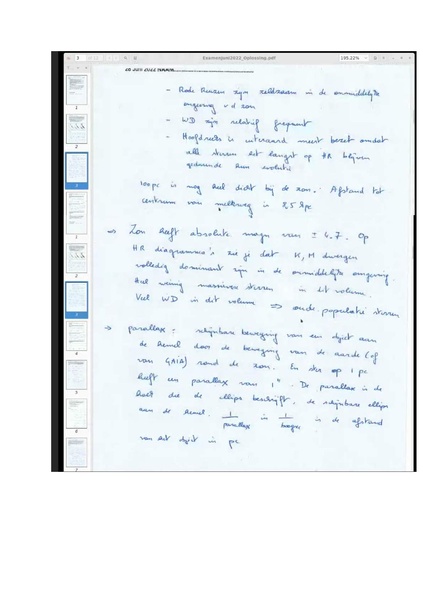 2
Examenjuni2022_Oplossing.pdf
195.22%
28 Juni 2022 NAAM:
- Rode Reuzen zijn zeldzaam in de onmiddellijke
omgeving v d zon
- WD zijn relatief frequent
- Hoofdreeks is uiteraard meest bezet omdat
alle sterren het langst op HR blijven
gedurende hun evolutie
100pc is nog heel dicht bij de zon. Afstand tot
centrum van melkweg is 8,5 kpc
⇒ Zon heeft absolute magn van ± 4.7. Op
HR diagramma's zie je dat K, M dwergen
volledig dominant zijn in de onmiddellijke omgeving.
Heel weinig massieve sterren in dit volume.
Veel WD in dit volume ⇒ oude populatie sterren
→ parallax: schijnbare beweging van een object aan
de hemel door de beweging van de aarde (of
van GAIA) rond de zon. Een ster op 1 pc
heeft een parallax van 1". De parallax is de
hoek die de ellips beschrijft, de schijnbare ellips
aan de hemel. 1/parallax in 1/boogsec is de afstand
van het object in pc